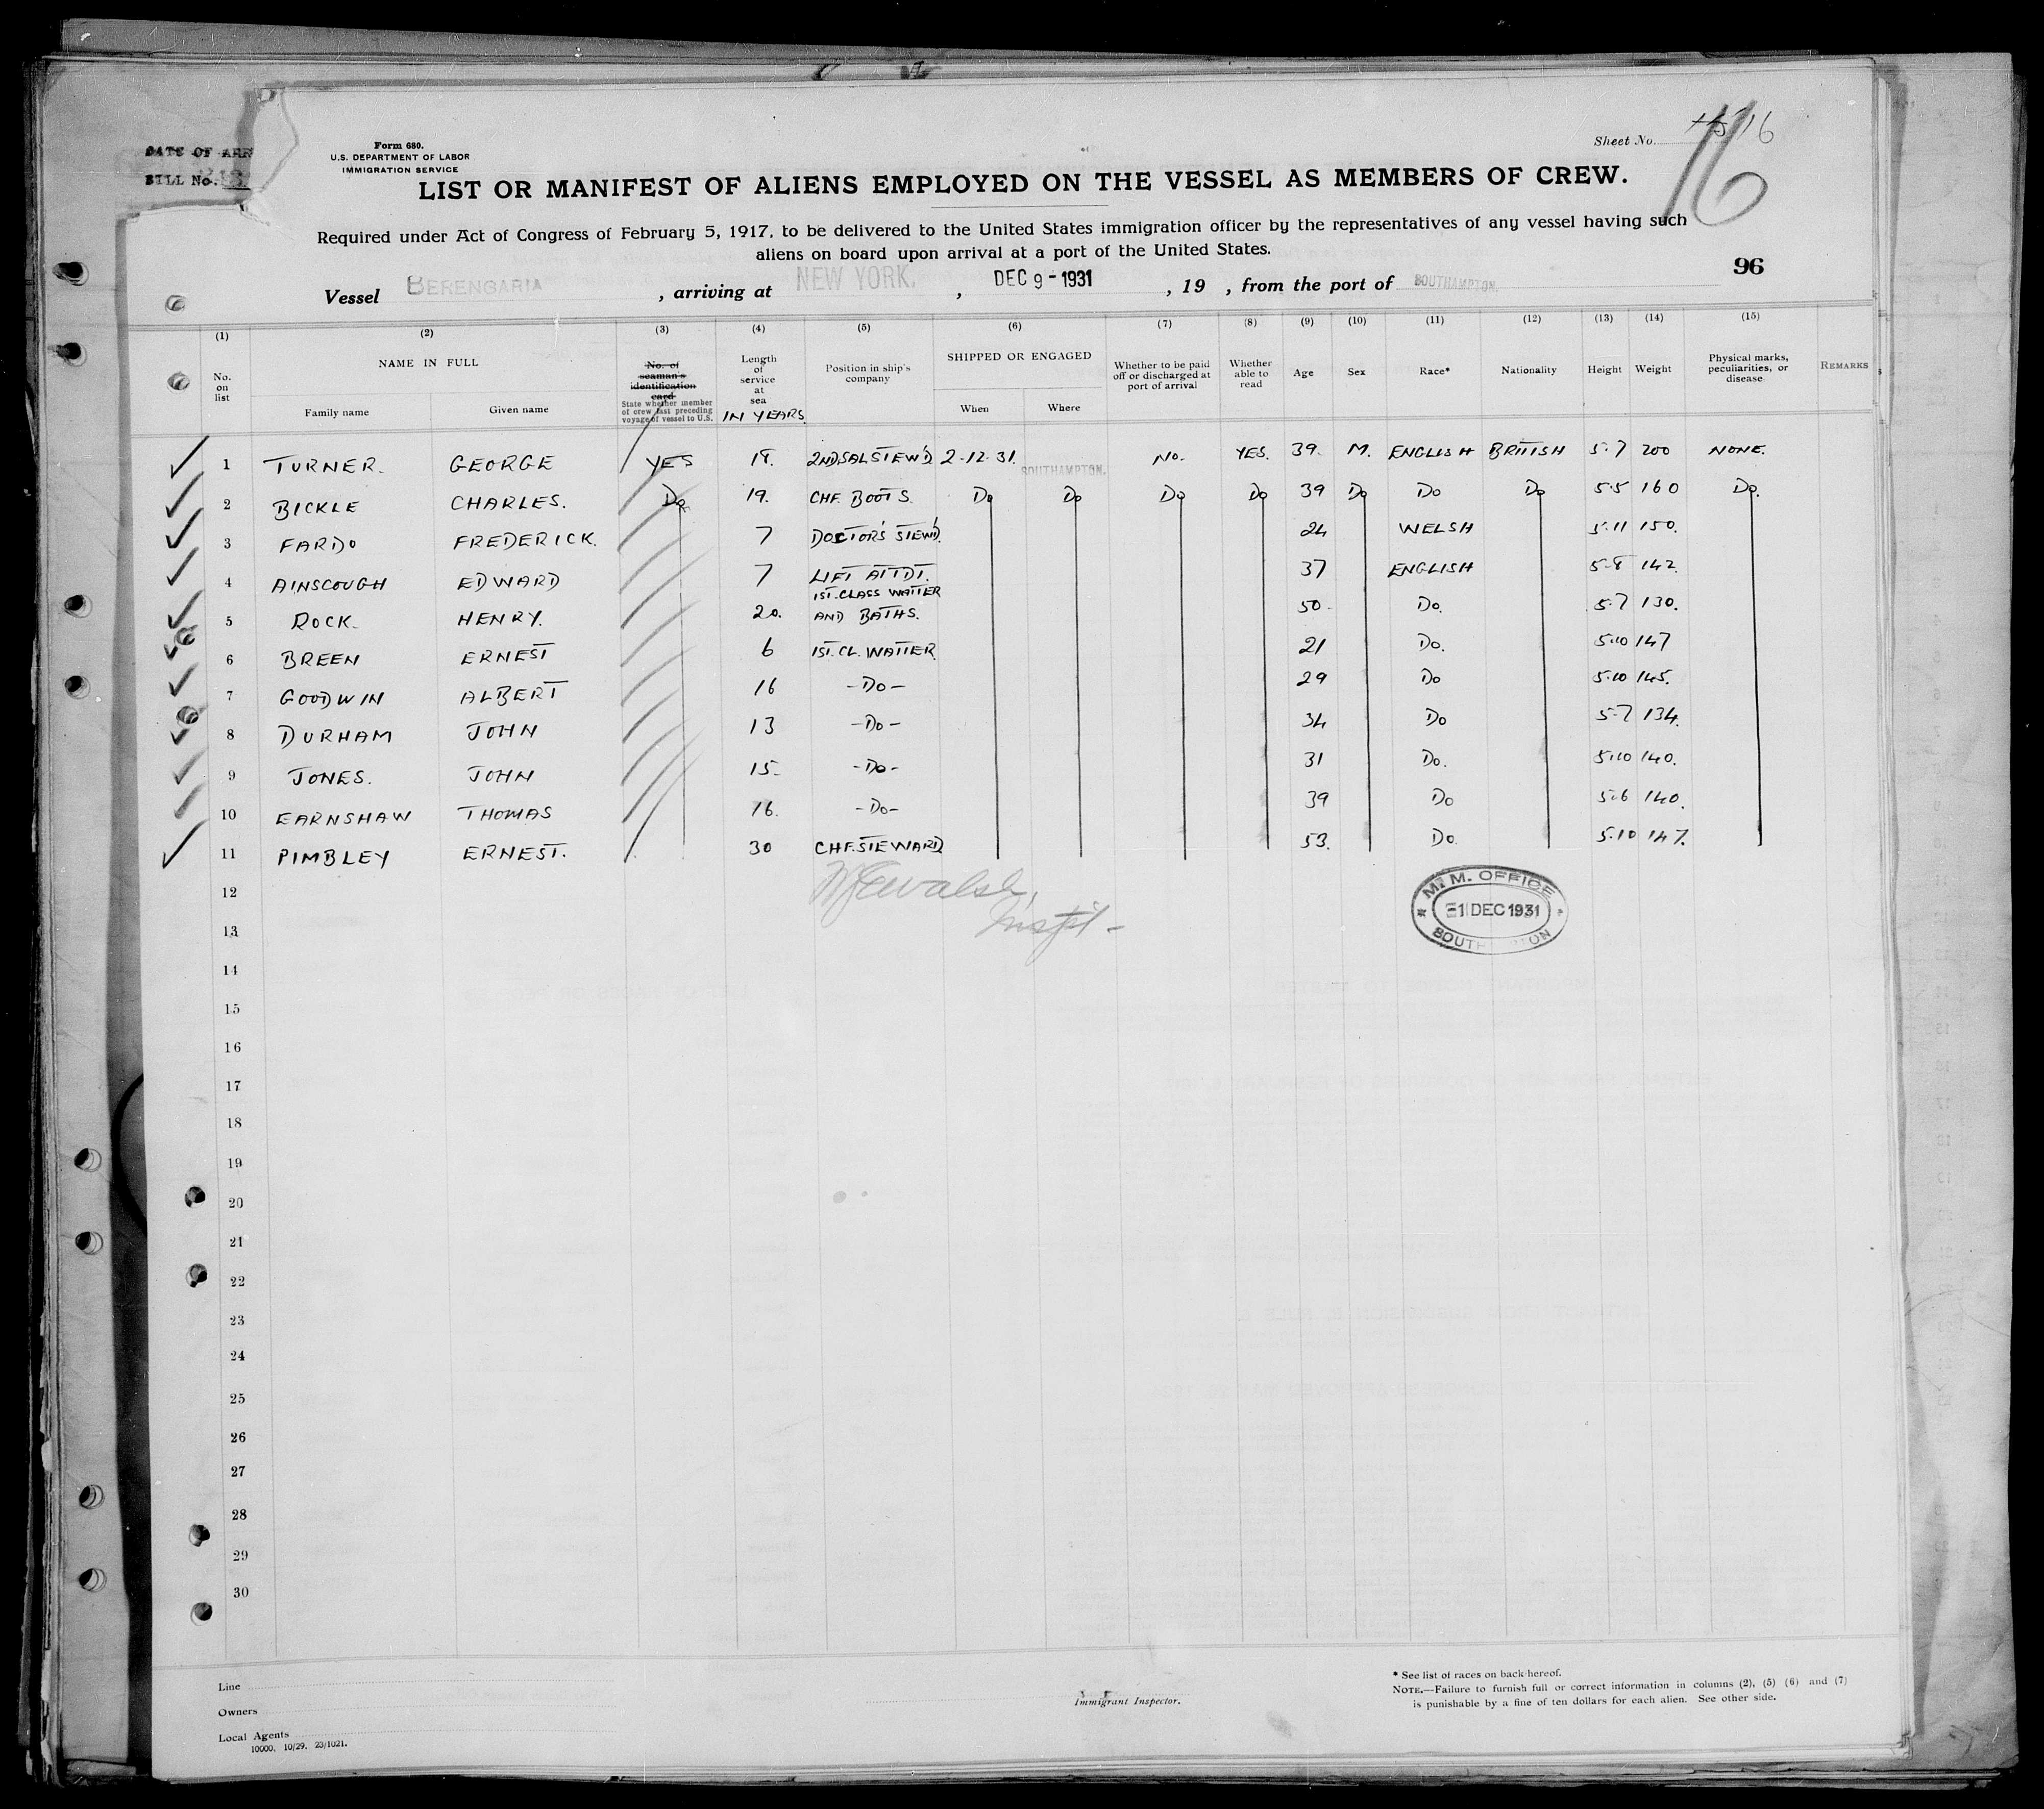 DATE OF ARR
BILL No.
Form 680.
U.S. DEPARTMENT OF LABOR
IMMIGRATION SERVICE
Sheet No. 15 16
16
LIST OR MANIFEST OF ALIENS EMPLOYED ON THE VESSEL AS MEMBERS OF CREW.
Required under Act of Congress of February 5, 1917, to be delivered to the United States immigration officer by the representatives of any vessel having such
aliens on board upon arrival at a port of the United States.
96
Vessel BERENGARIA , arriving at NEW YORK. , DEC 9 - 1931 , 19 , from the port of SOUTHAMPTON.
(1) (2) (3) (4) (5) (6) (7) (8) (9) (10) (11) (12) (13) (14) (15)
No. on list
NAME IN FULL
Family name Given name
No. of seaman's identification card
State whether member of crew last preceding voyage of vessel to U.S.
Length of service at sea IN YEARS
Position in ship's company
SHIPPED OR ENGAGED
When Where
Whether to be paid off or discharged at port of arrival
Whether able to read
Age Sex Race* Nationality Height Weight
Physical marks, peculiarities, or disease
REMARKS
1 TURNER. GEORGE YES 18. 2ND SAL STEW'D 2-12-31. SOUTHAMPTON. No. YES. 39. M. ENGLISH BRITISH 5-7 200 NONE.
2 BICKLE CHARLES. Do 19. CHF. BOOTS. Do Do Do Do 39 Do Do Do 5-5 160 Do.
3 FARDO FREDERICK. 7 DOCTOR'S STEWD. 24 WELSH 5-11 150.
4 AINSCOUGH EDWARD 7 LIFT ATTDT. 37 ENGLISH 5-8 142.
5 ROCK. HENRY. 20. 1ST. CLASS WAITER AND BATHS. 50- Do. 5-7 130.
6 BREEN ERNEST 6 1ST. CL. WAITER. 21 Do. 5-10 147
7 GOODWIN ALBERT 16 -Do- 29 Do 5-10 145.
8 DURHAM JOHN 13 -Do- 34 Do 5-7 134.
9 JONES. JOHN 15- -Do- 31 Do. 5-10 140.
10 EARNSHAW THOMAS 16. -Do- 39 Do 5-6 140.
11 PIMBLEY ERNEST. 30 CHF. STEWARD 53. Do. 5-10 147.
12
13
M. M. OFFICE
1 DEC 1931
SOUTHAMPTON
14
15
16
17
18
19
20
21
22
23
24
25
26
27
28
29
30
Line
Owners
Local Agents
10000. 10/29. 23/1021.
Immigrant Inspector.
* See list of races on back hereof.
NOTE.—Failure to furnish full or correct information in columns (2), (5) (6) and (7)
is punishable by a fine of ten dollars for each alien. See other side.